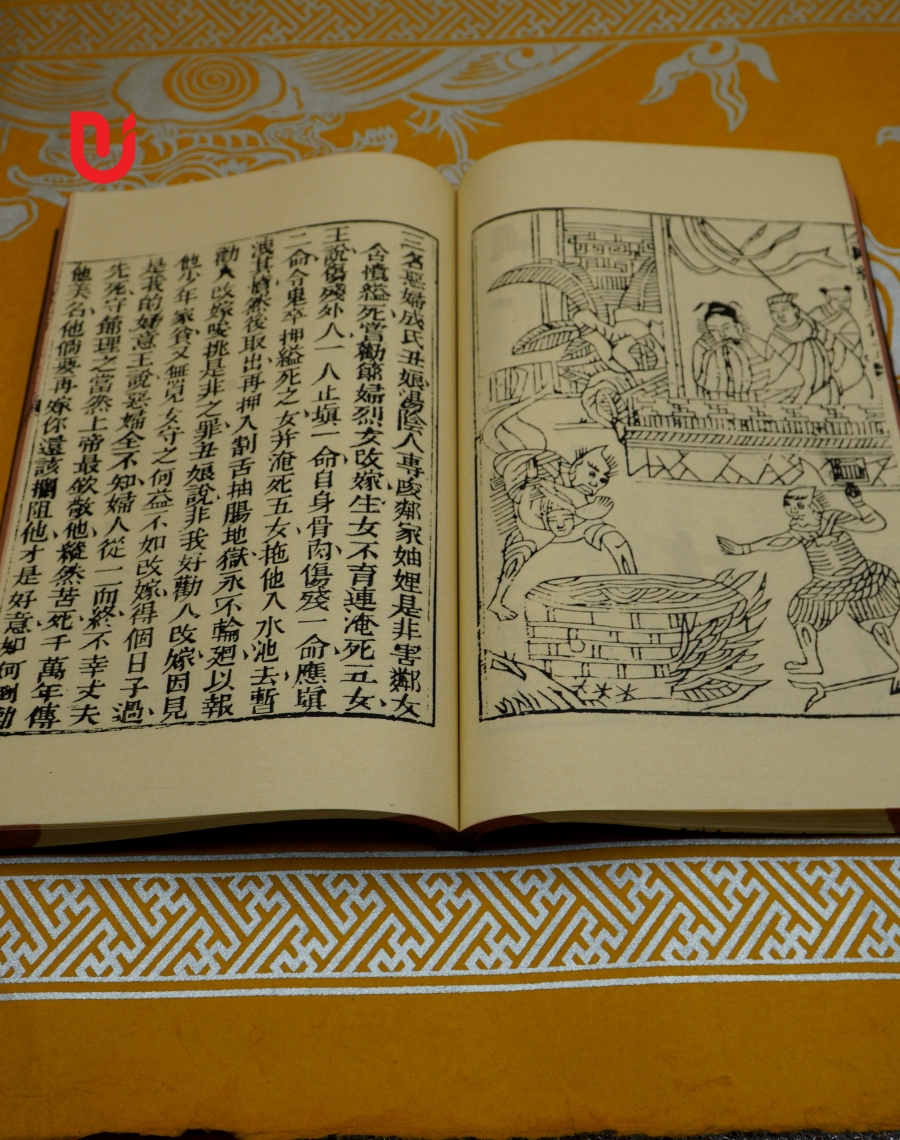 三名惡婦成氏丑娘湯陰人專唆鄰家妯娌是非害鄰女
含憤縊死嘗勸節婦烈女改嫁生女不育連淹死五女
王說傷殘外人一人止填一命自身骨肉傷殘一命應填
二命令鬼卒押縊死之女并淹死五女拖他入水池去暫
其憤然後取出再押入割舌抽腸地獄永不輪廻以報
勸人改嫁唆挑是非之罪丑娘說非我好勸人改嫁因見
他少年家貧又無兒女守之何益不如改嫁得個日子過
是我的好意王說惡婦全不知婦人從一而終不幸丈夫
先死守節理之當然上帝最欽敬他縱然苦死千萬年傳
他美名他倘要再嫁你還該攔阻他才是好意如何倒勸